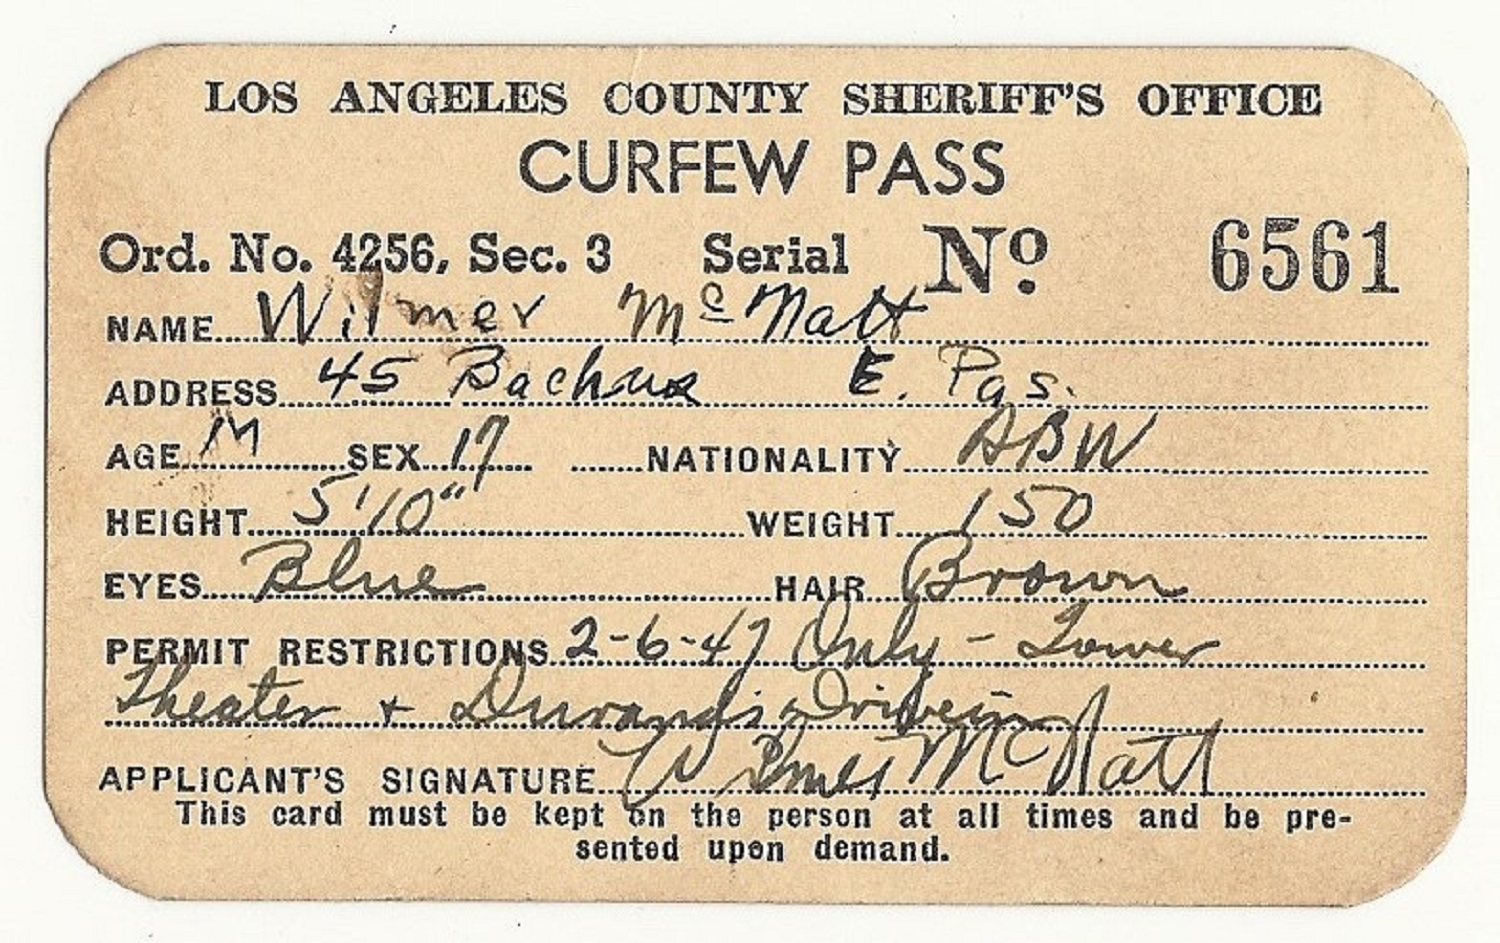 LOS ANGELES COUNTY SHERIFF'S OFFICE
CURFEW PASS
Ord. No. 4256, Sec. 3 Serial No. 6561
NAME Wilmer McNatt
ADDRESS 45 Bachus E. Pas.
AGE M SEX 17 NATIONALITY ABW
HEIGHT 5'10" WEIGHT 150
EYES Blue HAIR Brown
PERMIT RESTRICTIONS 2-6-47 Only - Tower
Theater + Drivein
APPLICANT'S SIGNATURE Wilmer McNatt
This card must be kept on the person at all times and be pre-
sented upon demand.